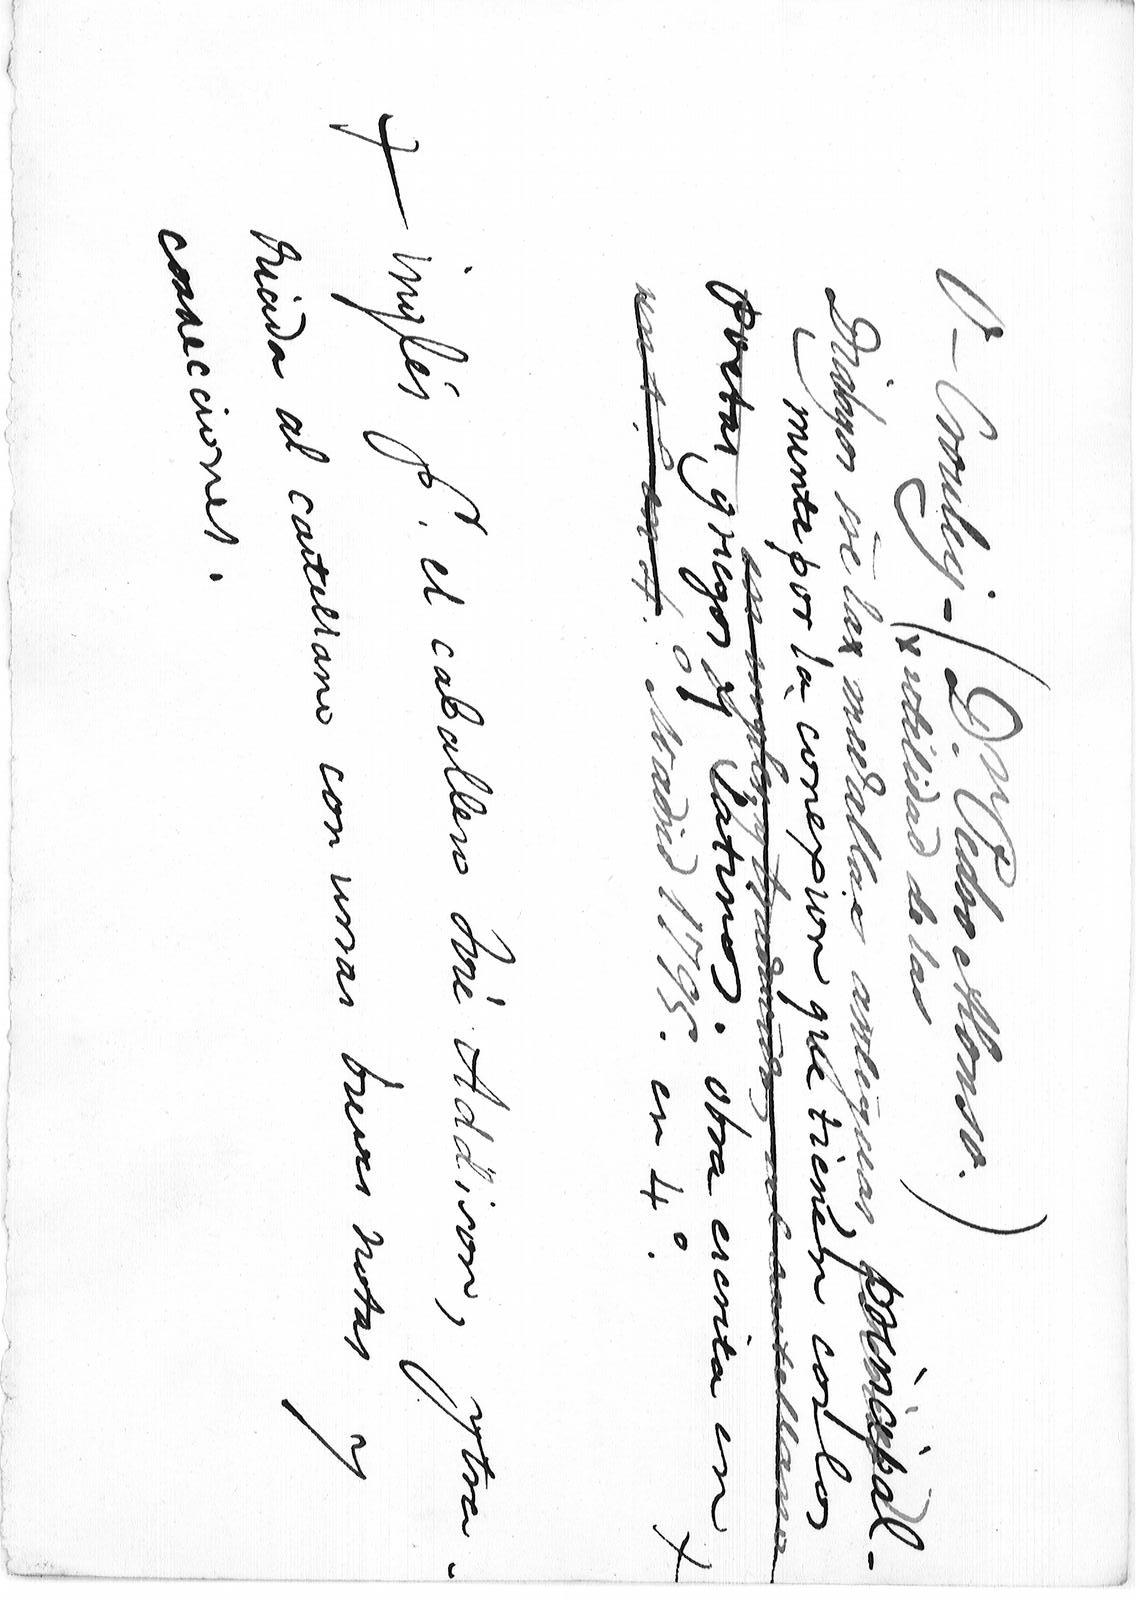 O-Crouley - (D. Pedro Alonso.)
x utilidad de las
Dialogos sre las medallas antiguas, principal-
mente por la conexion que tienen con los
en ingles y traducido al castellano
Poetas griegos y Latinos. obra escrita en +
Madrid 1795. en 4º.
+ inglés pr. el caballero José Addison, y tra-
ducida al castellano con unas breves notas y
correcciones.